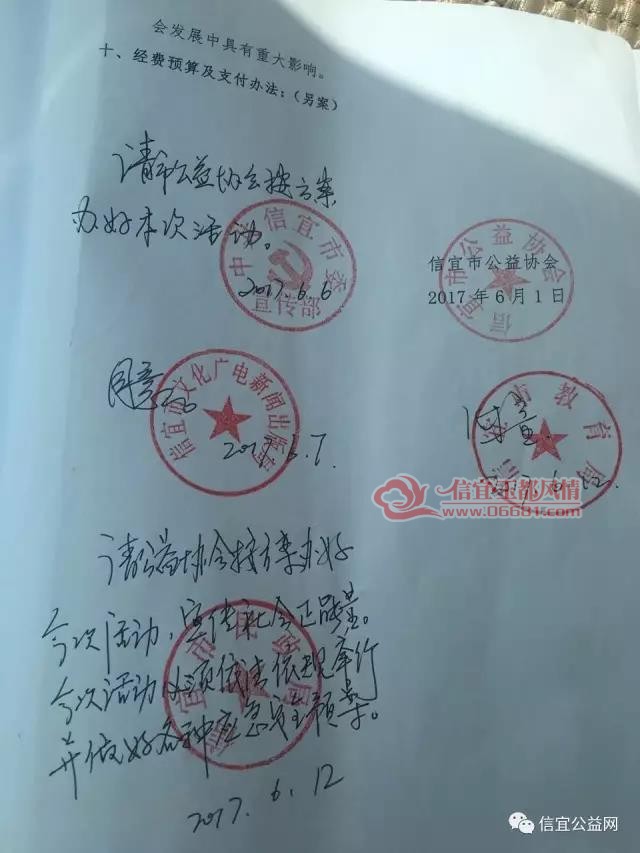 会发展中具有重大影响。
十、经费预算及支付办法：（另案）
请市公益协会按方案
办好本次活动。
中共信宜市委
宣传部
2017.6.6
信宜市公益协会
信宜市公益协会
2017年6月1日
同意
信宜市文化广电新闻出版局
2017.6.7.
同意.
信宜市教育局
2017.6.12.
信宜玉都风情
www.06681.com
请公益协会按方案办好
今次活动，宣传社会正能量。
今次活动必须依法依规举行
并做好各种应急安全预案。
信宜市民政局
2017.6.12
信宜公益网